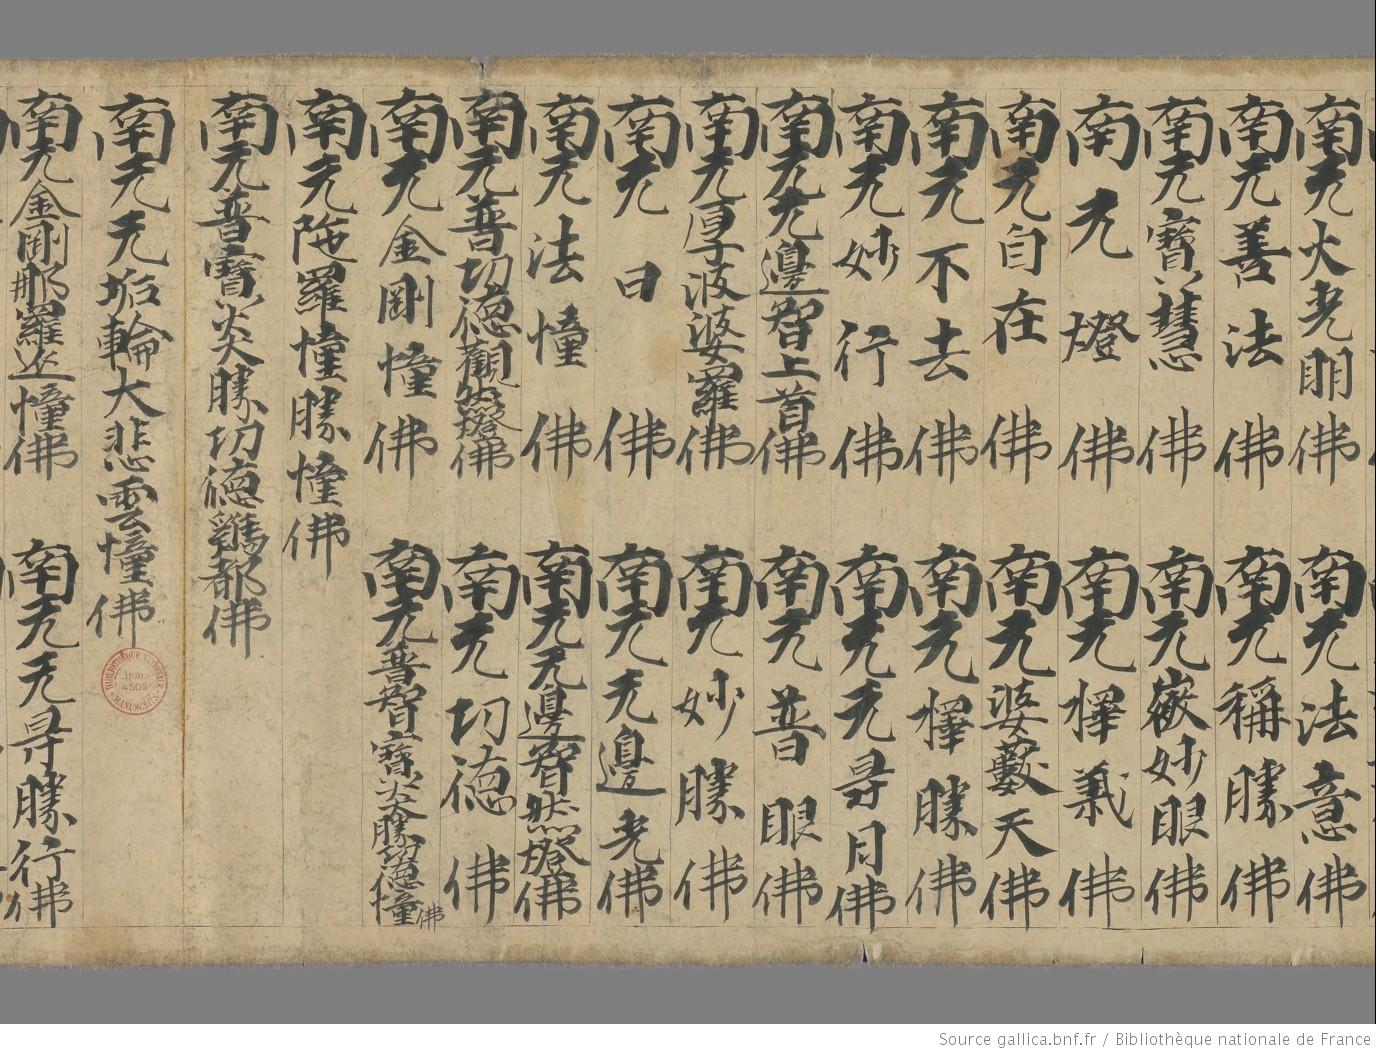 南无火光明佛
南无法意佛
南无善法佛
南无稱勝佛
南无寶慧佛
南无嚴妙眼佛
南无燈佛
南无懌義佛
南无自在佛
南无婆藪天佛
南无不去佛
南无懌勝佛
南无妙行佛
南无无㝵月佛
南无无邊智上首佛
南无普眼佛
南无厚波婆羅佛
南无妙勝佛
南无日佛
南无无邊光佛
南无法幢佛
南无无邊智然燈佛
南无普切德觀然燈佛
南无切德佛
南无金剛幢佛
南无普智寶炎勝切德幢佛
南无陁羅幢勝幢佛
南无普寶炎勝切德雞都佛
南无无垢輪大悲雲幢佛
南无金剛那羅延幢佛
南无无㝵勝行佛
BIBLIOTHÈQUE NATIONALE
4502
MANUSCRITS
Source gallica.bnf.fr / Bibliothèque nationale de France